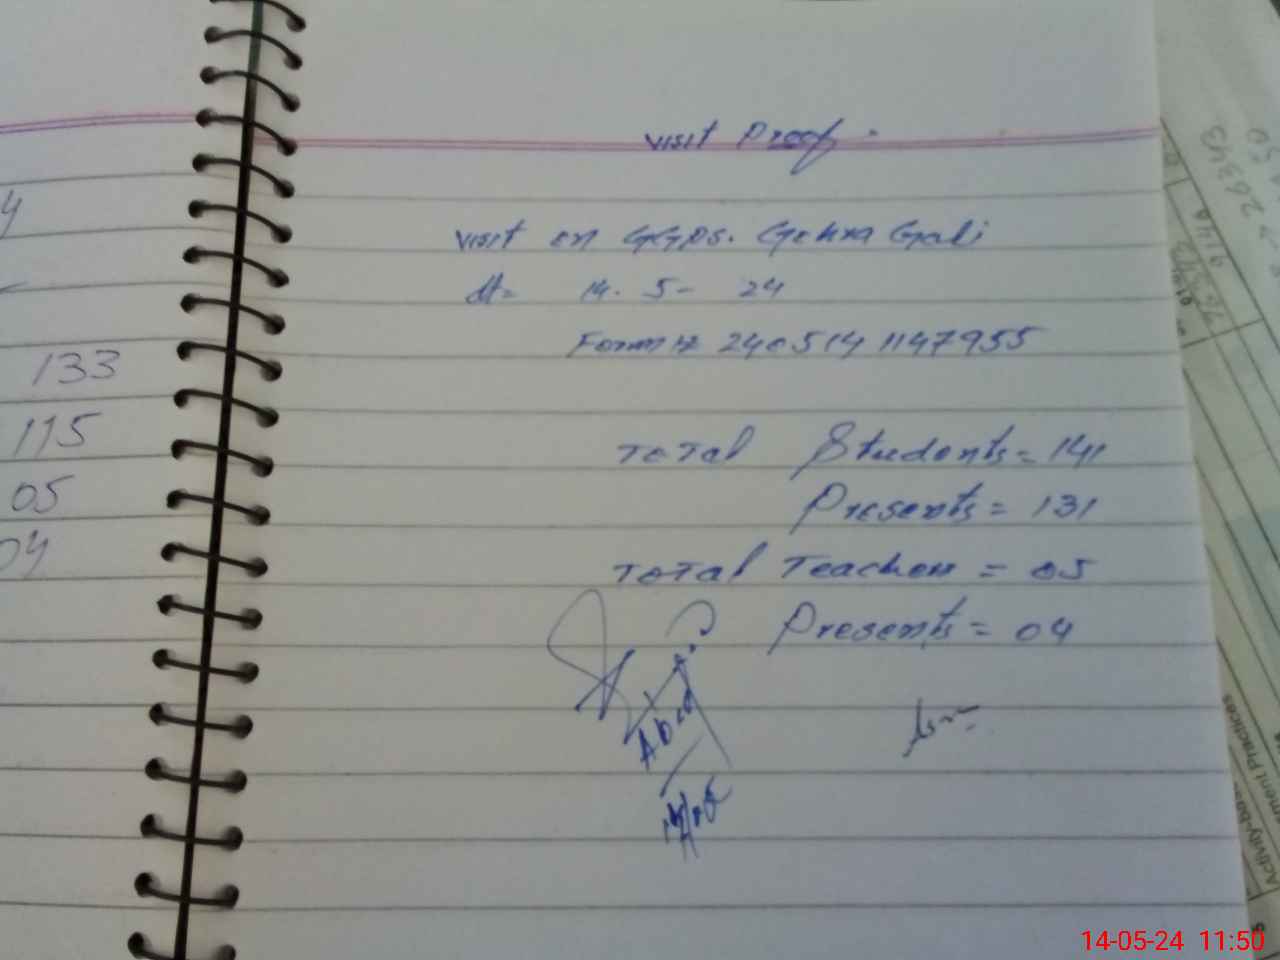 133
115
05
04
visit Proof.
visit on GGPS. Gehra Gali
dt= 14. 5- 24
Form# 240514 1147955
Total Students = 141
Presents = 131
Total Teacher = 05
Presents = 04
Abid
26343
9140
ment Practices
Activity-bas
14-05-24 11:50